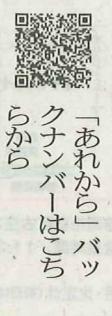 「あれから」バッ
クナンバーはこち
らから